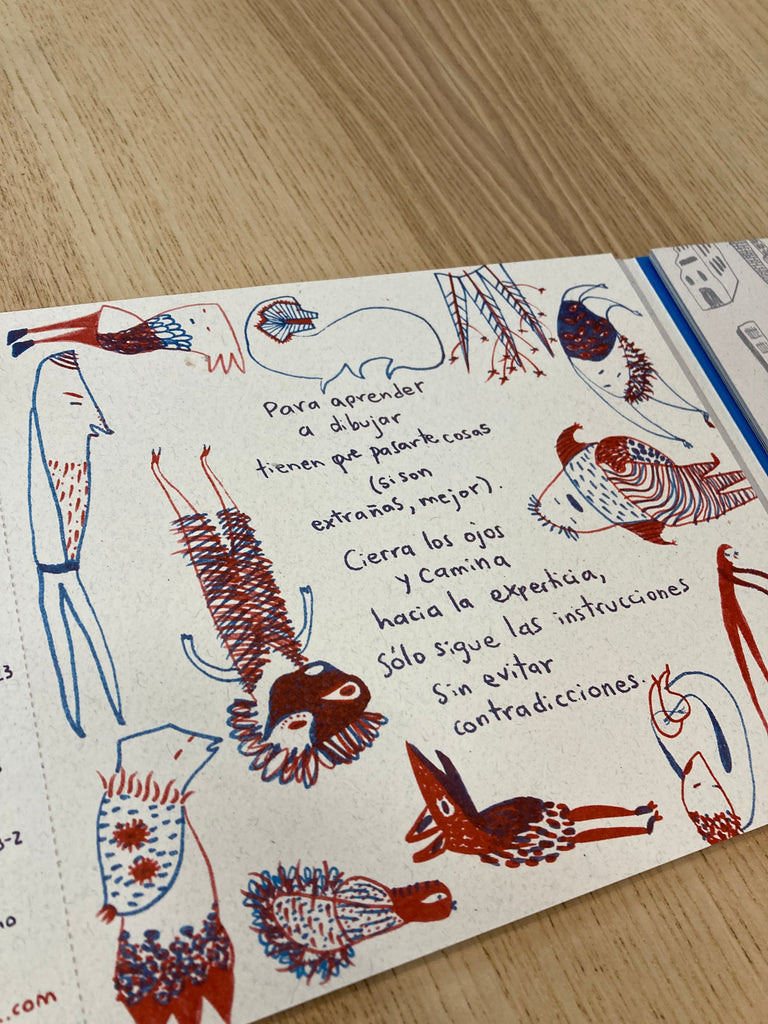 Para aprender
a dibujar
tienen que pasarte cosas
(si son
extrañas, mejor).
Cierra los ojos
y camina
hacia la experticia,
Sólo sigue las instrucciones
Sin evitar
contradicciones.
23
3-2
no
.com